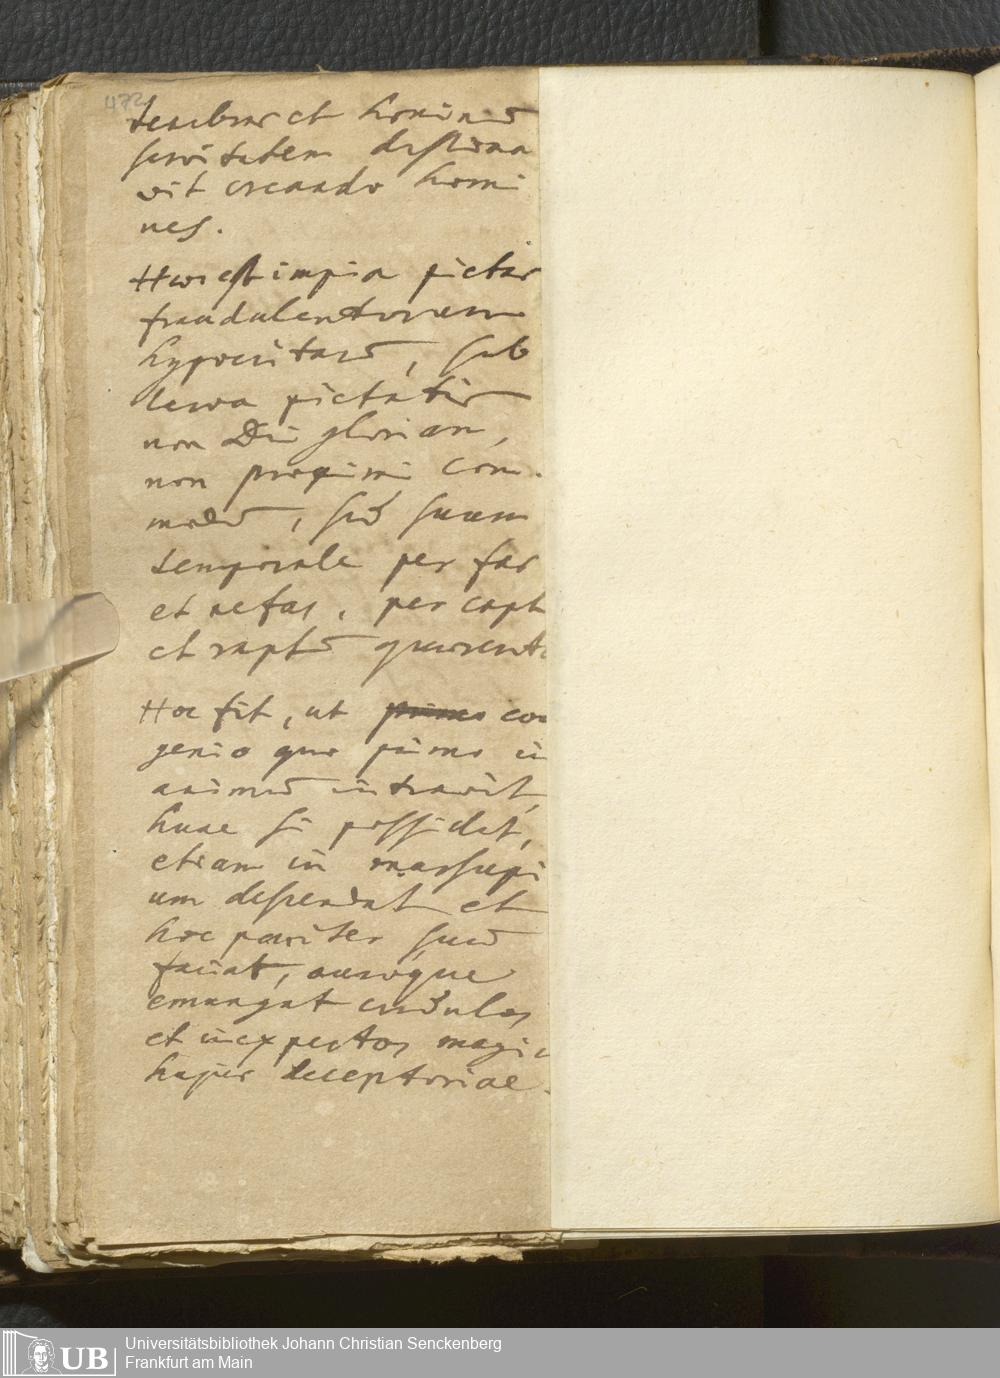 472
tenebrar et hominū
servitutem destina
vit creando homi
nes.
Haec est impia pietas
fraudulentorum
hypocritarū, sub
larva pietatis
non Dei gloriam,
non proximi com.
modū, sed suum
temporale per fas
et nefas, per capt
et raptū quaerenti
Hoc fit, ut primo
genio quo primo in
animū intravit,
hunc si possidet,
etiam in marsupi
um descendat et
hoc pariter suū
faciat, auroque
emungat credulos
et inexpertos
hujus deceptoriae.
UB
Universitätsbibliothek Johann Christian Senckenberg
Frankfurt am Main